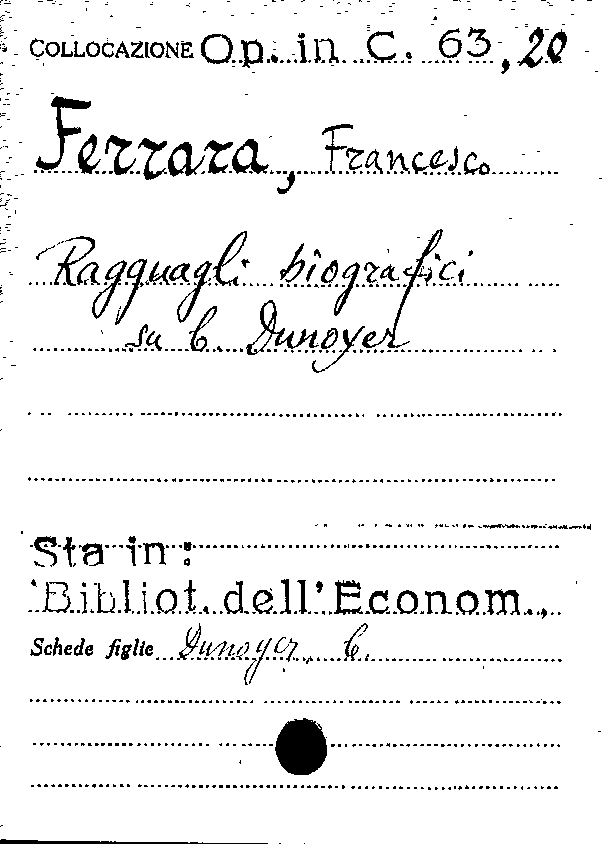 COLLOCAZIONE Op. in C. 63,20
Ferrara, Francesco
Ragguagli biografici
su C. Dunoyer
Sta in:
'Bibliot. dell'Econom.,
Schede figlie Dunoyer, C.